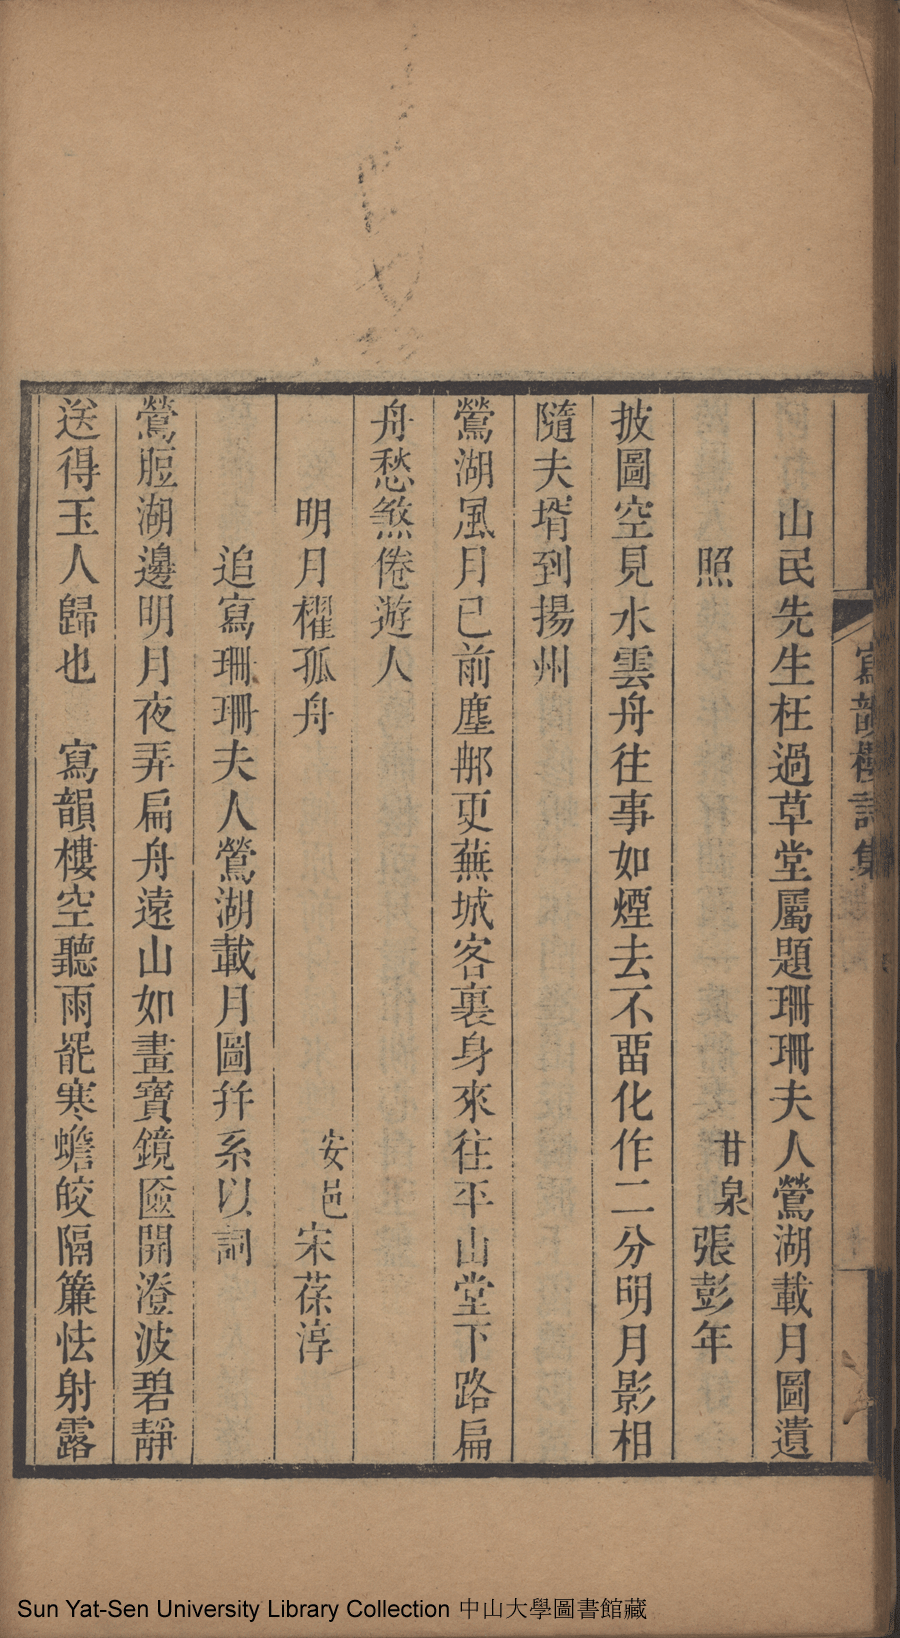 寫韻樓詩集
山民先生枉過草堂屬題珊珊夫人鶯湖載月圖遺
照　甘泉張彭年
披圖空見水雲舟往事如煙去不畱化作二分明月影相
隨夫壻到揚州
鶯湖風月已前塵郍更蕪城客裏身來往平山堂下路扁
舟愁煞倦遊人
明月櫂孤舟　安邑宋葆淳
追寫珊珊夫人鶯湖載月圖并系以詞
鶯脰湖邊明月夜弄扁舟遠山如畫寶鏡匳開澄波碧靜
送得玉人歸也　寫韻樓空聽雨罷寒蟾皎隔簾怯射露
Sun Yat-Sen University Library Collection 中山大學圖書館藏